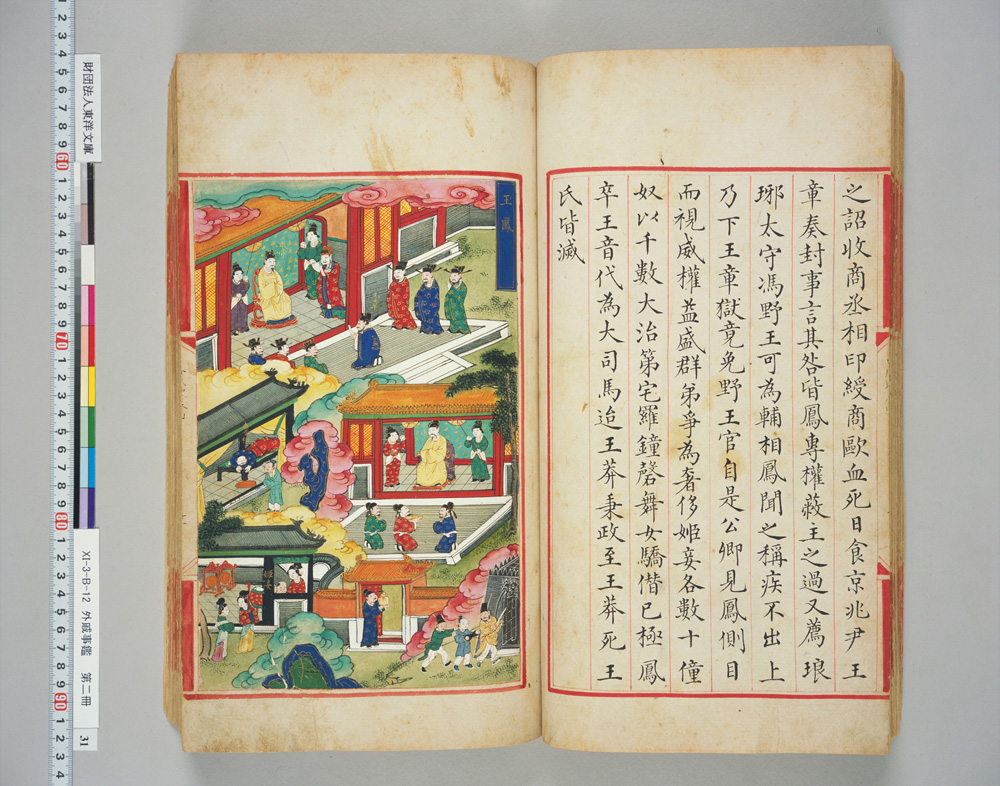 之詔收商丞相印綬商歐血死日食京兆尹王
章奏封事言其咎皆鳳專權蔽主之過又薦琅
琊太守馮野王可為輔相鳳聞之稱疾不出上
乃下王章獄竟免野王官自是公卿見鳳側目
而視威權益盛群弟爭為奢侈姬妾各數十僮
奴以千數大治第宅羅鐘磬舞女驕僣已極鳳
卒王音代為大司馬迨王莽秉政至王莽死王
氏皆滅
王鳳
財団法人東洋文庫
XI-3-B-12 外戚事鑑 第二冊
31
1 2 3 4 5 6 7 8 9 60 1 2 3 4 5 6 7 8 9 70 1 2 3 4 5 6 7 8 9 80 1 2 3 4 5 6 7 8 9 90 1 2 3 4